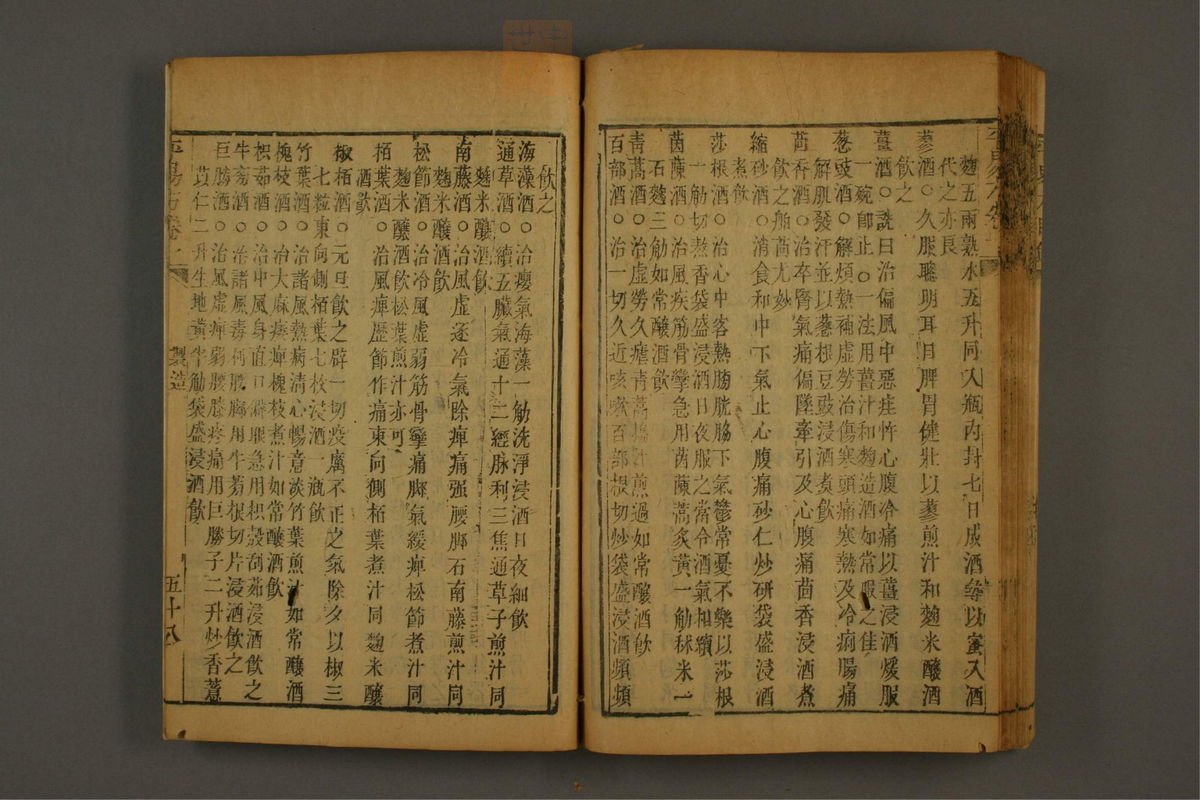 麴五兩熟水五升同入瓶內封七日成酒等以蜜入酒
代之亦良
蓼酒○久服聰明耳目脾胃健壯以蓼煎汁和麴米釀酒
飲之
薑酒○詵曰治偏風中惡疰忤心腹冷痛以薑浸酒煖服
一碗卽止○一法用薑汁和麴造酒如常服之佳
葱豉酒○解煩熱補虛勞治傷寒頭痛寒熱及冷痢腸痛
解肌發汗並以葱根豆豉浸酒煮飲
茴香酒○治卒腎氣痛偏墜牽引及心腹痛茴香浸酒煮
飲之舶茴尤妙
縮砂酒○消食和中下氣止心腹痛砂仁炒研袋盛浸酒
煮飲
莎根酒○治心中客熱膀胱脇下氣鬱常憂不樂以莎根
一觔切熬香袋盛浸酒日夜服之常令酒氣相續
茵蔯酒○治風疾筋骨攣急用茵蔯蒿炙黃一觔秫米一
石麴三觔如常釀酒飲
青蒿酒○治虛勞久瘧青蒿搗汁煎過如常釀酒飲
百部酒○治一切久近咳嗽百部根切炒袋盛浸酒頻頻
飲之
海藻酒○治癭氣海藻一觔洗淨浸酒日夜細飲
通草酒○續五臟氣通十二經脉利三焦通草子煎汁同
麴米釀酒飲
南藤酒○治風虛逐冷氣除痺痛强腰脚石南藤煎汁同
麴米釀酒飲
松節酒○治冷風虛弱筋骨攣痛脚氣緩痺松節煮汁同
麴米釀酒飲松葉煎汁亦可
栢葉酒○治風痺歷節作痛東向側栢葉煮汁同麴米釀
酒飲
椒栢酒○元旦飲之辟一切疫癘不正之氣除夕以椒三
七粒東向側栢葉七枚浸酒一瓶飲
竹葉酒○治諸風熱病清心暢意淡竹葉煎汁如常釀酒
槐枝酒○治大麻痿痺槐枝煮汁如常釀酒飲
枳茹酒○治中風身直口僻眼急用枳殼刮茹浸酒飲之
牛蒡酒○治諸風毒利腰脚用牛蒡根切片浸酒飲之
巨勝酒○治風虛痺弱腰膝疼痛用巨勝子二升炒香薏
苡仁二升生地黃半觔袋盛浸酒飲
製造
五十八